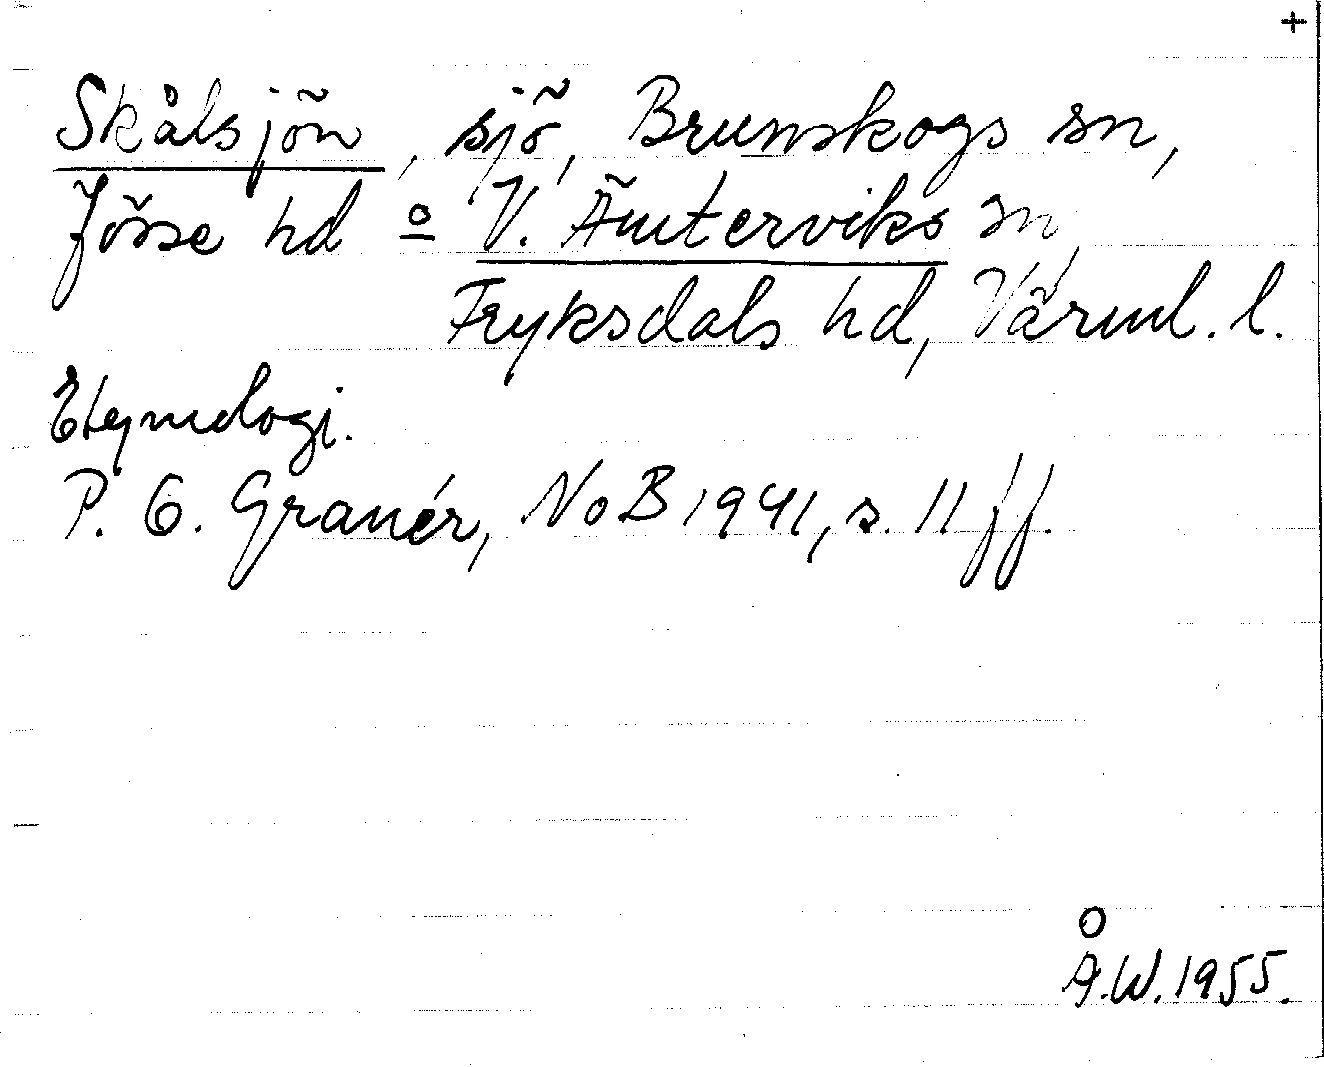 +
Skålsjön, sjö, Brunskogs sn,
Jösse hd o V. Ämterviks sn,
Fryksdals hd, Värml. l.
Etymologi.
P. G. Granér, NoB 1941, s. 11 ff.
Å.W. 1955.